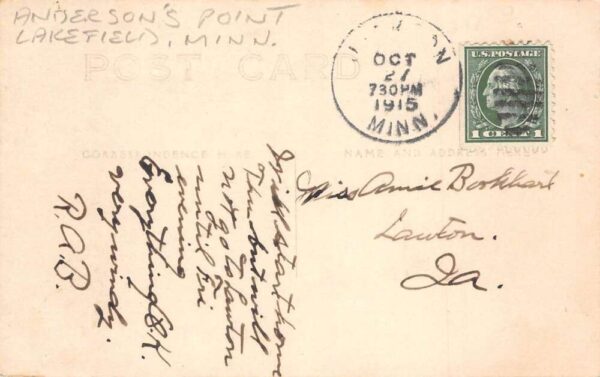 ANDERSON'S POINT
LAKEFIELD, MINN.
POST CARD
OCT
27
730PM
1915
MINN.
U.S. POSTAGE
1 CENT 1
CORRESPONDENCE HERE
NAME AND ADDRESS HERE
Will start home
Thu but will
not go to Lawton
until Fri
evening
Everything O.K.
very windy.
R.A.B.
Miss Amie Borkhart
Lawton.
Ia.